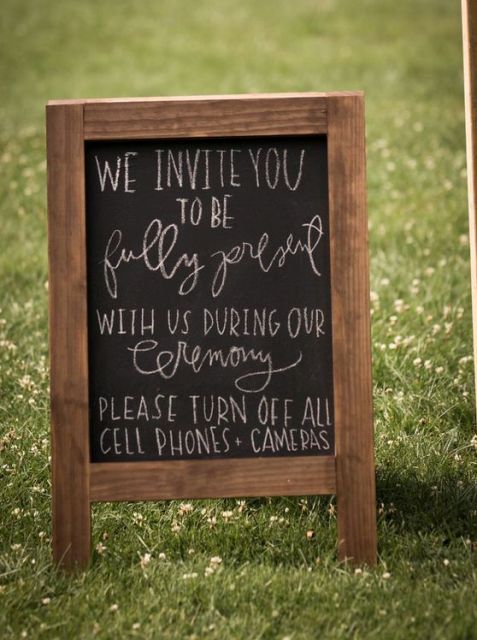 WE INVITE YOU
TO BE
fully present
WITH US DURING OUR
Ceremony
PLEASE TURN OFF ALL
CELL PHONES + CAMERAS